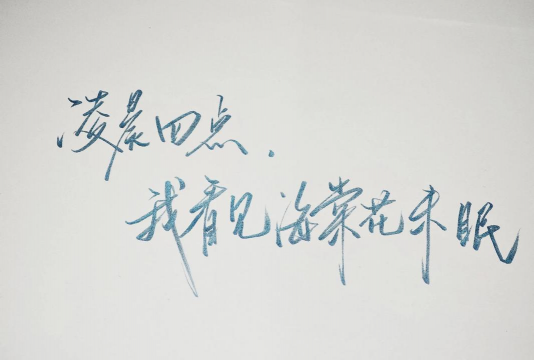 凌晨四点.
我看见海棠花未眠